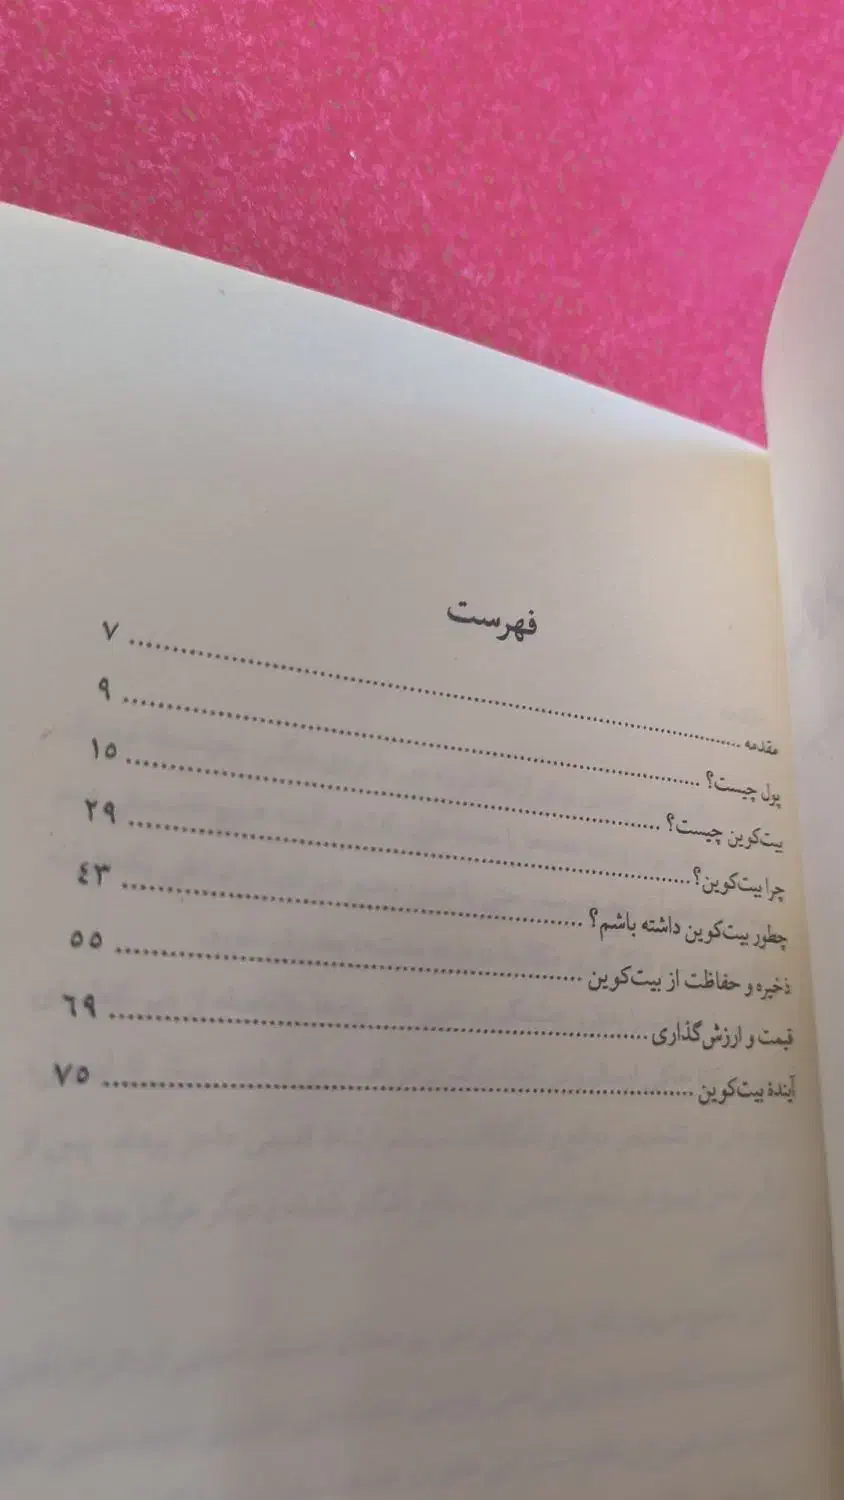 فهرست
مقدمه ........................................................ ۷
پول چیست؟ ........................................................ ۹
بیت‌کوین چیست؟ ........................................................ ۱۵
چرا بیت‌کوین؟ ........................................................ ۲۹
چطور بیت‌کوین داشته باشم؟ ........................................................ ۴۳
ذخیره و حفاظت از بیت‌کوین ........................................................ ۵۵
قیمت و ارزش‌گذاری ........................................................ ۶۹
آیندۀ بیت‌کوین ........................................................ ۷۵